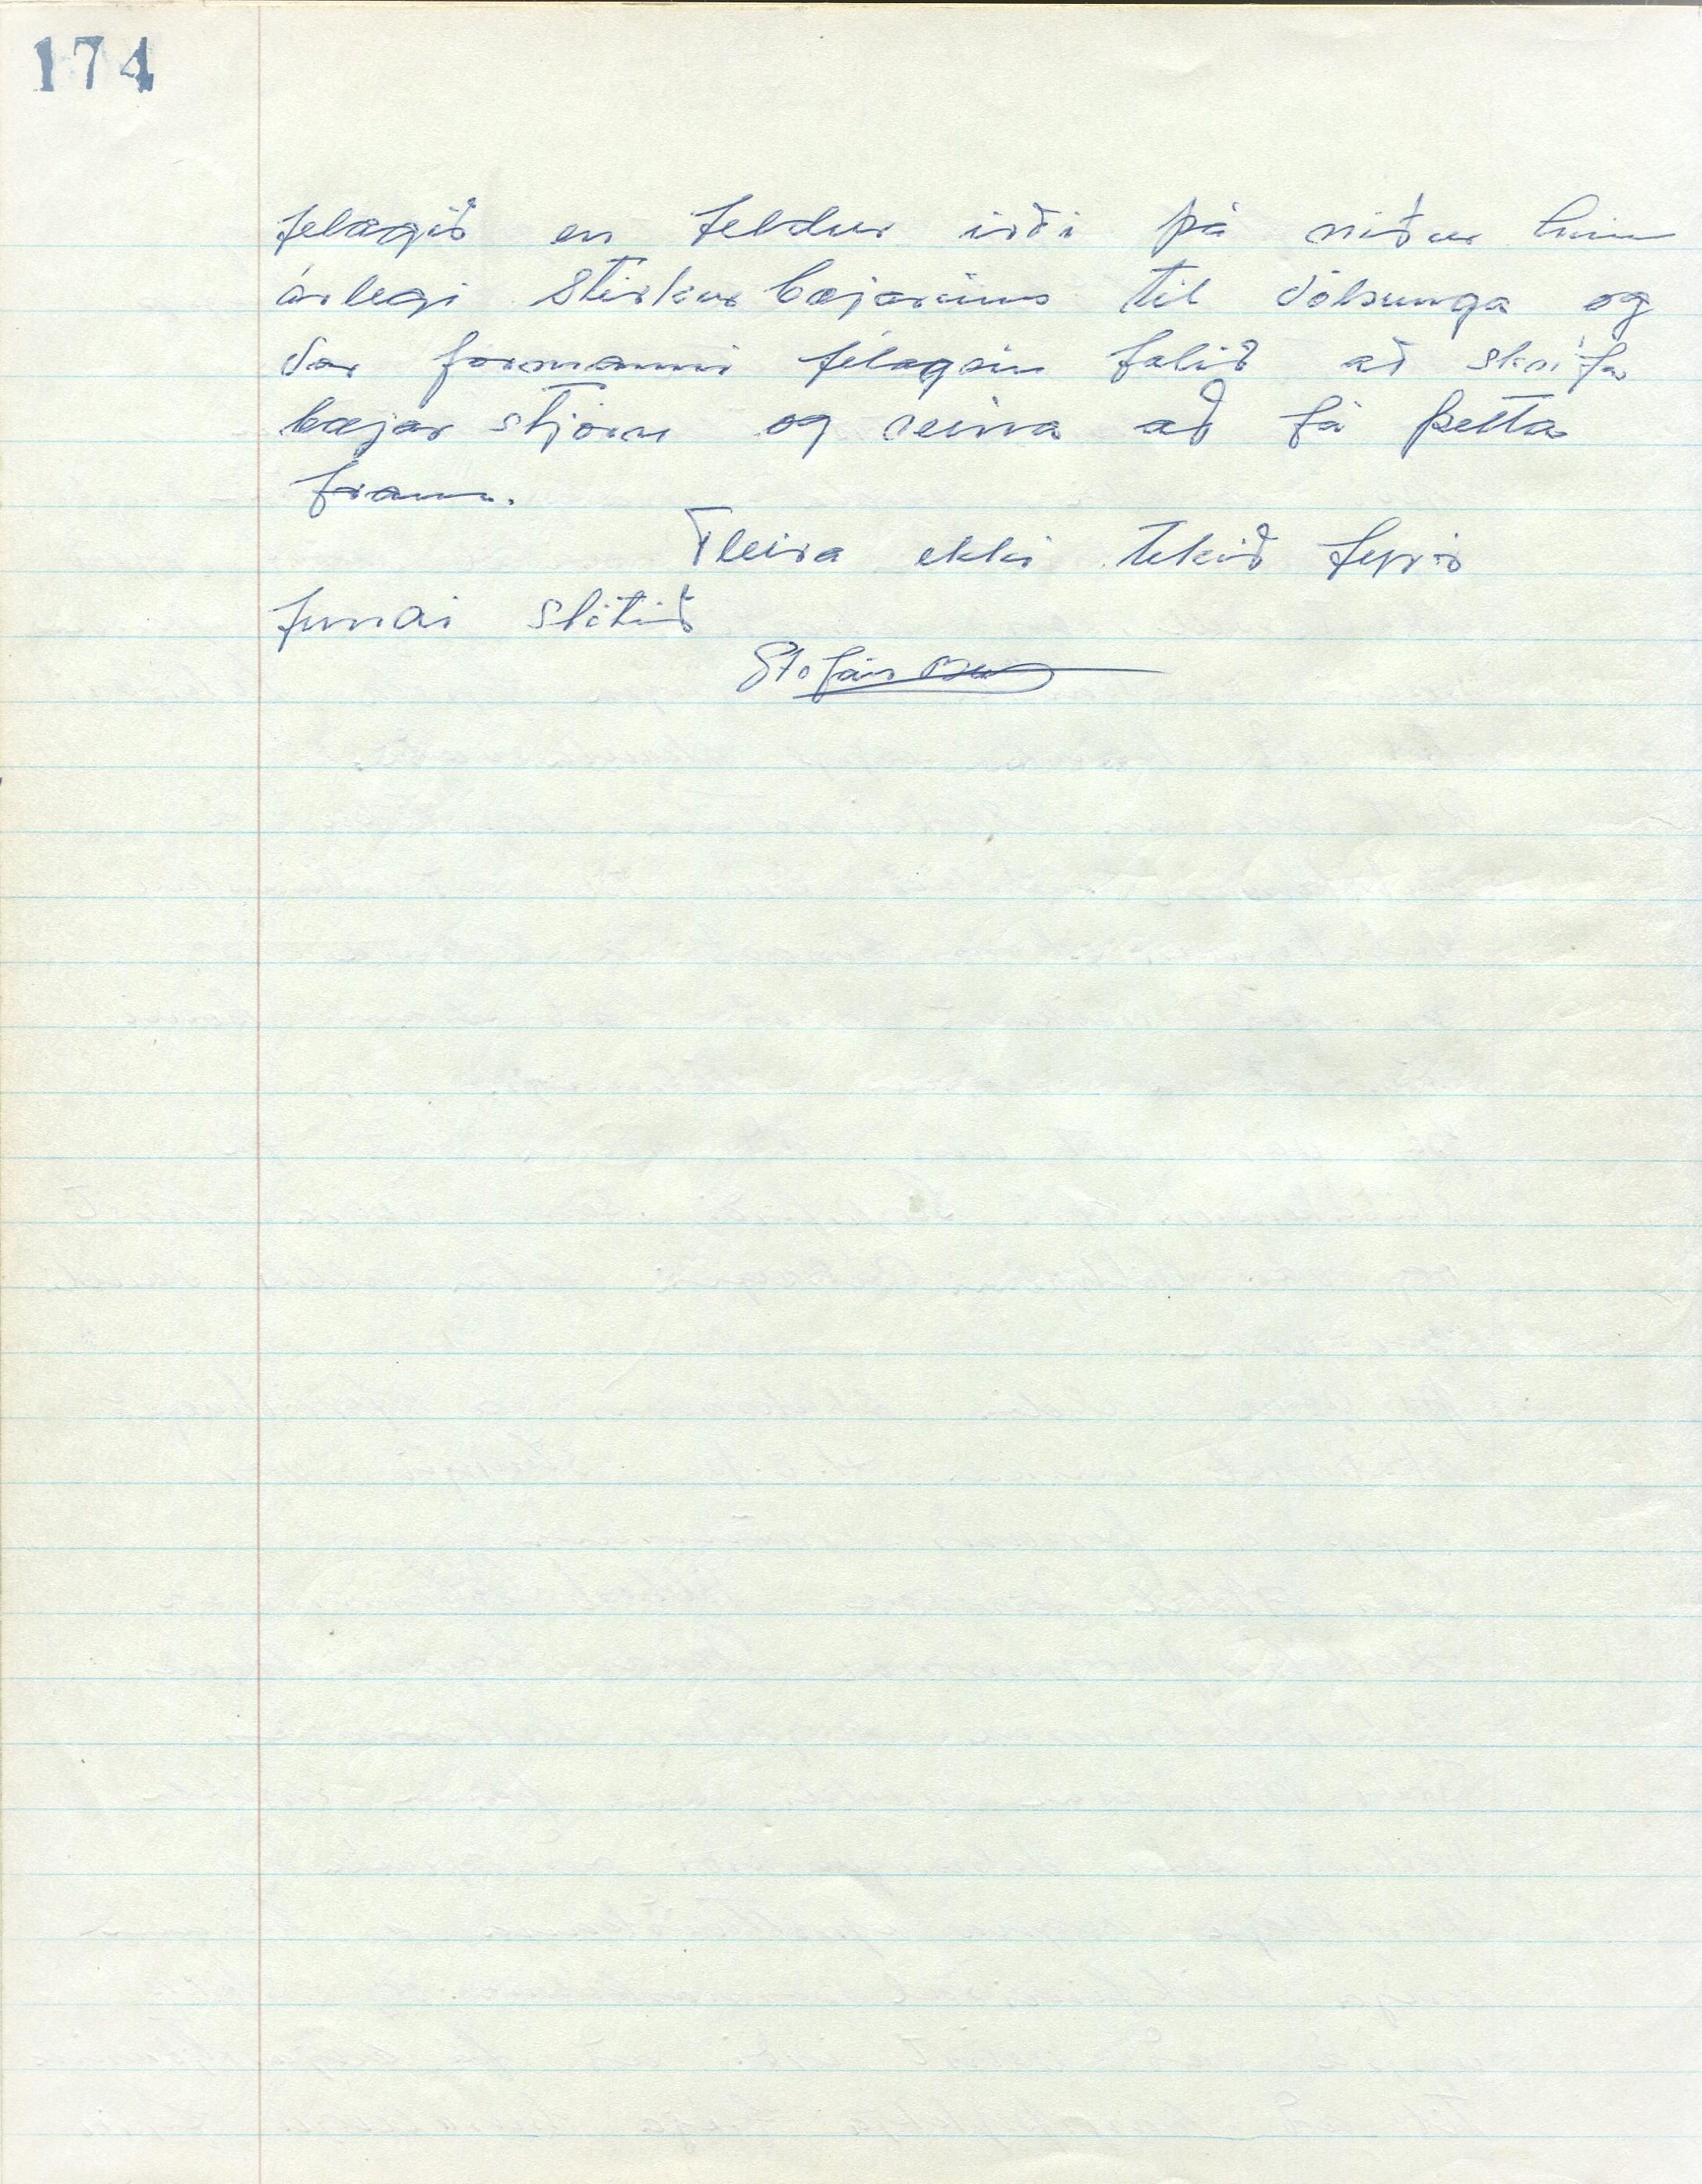 174
felagið en feldur irði þá niður hin
árlegi Stirkur bæjarins til Völsunga og
Var formanni félagsin falið að skrifa
bæjar stjórn og reina að fá þetta
fram.
Fleira ekki tekið fyrir
fundi slitið
Stefán